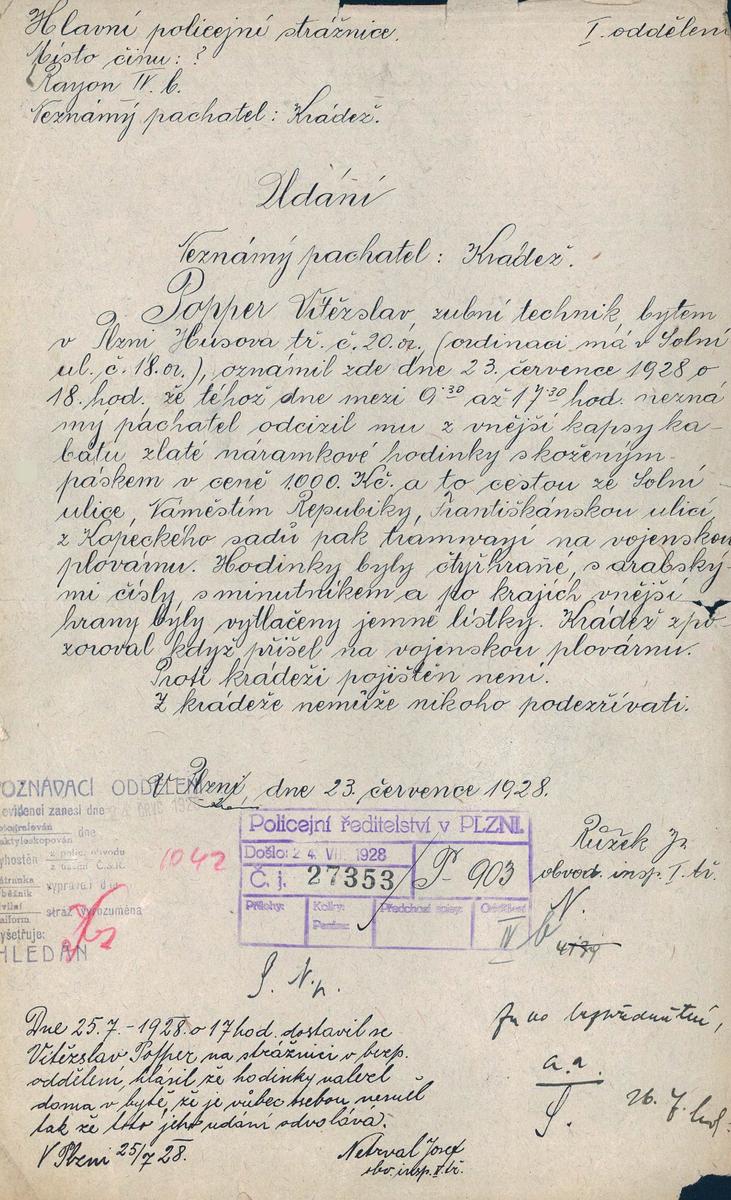 Hlavní policejní strážnice. I. oddělení
Místo činu: ?
Rayon IV. b.
Neznámý pachatel: Krádež.
Udání
Neznámý pachatel: Krádež.
Popper Vítězslav, zubní technik, bytem
v Plzni Husova tř. č. 20. (ordinaci má v Solní
ul. č. 18.), oznámil zde dne 23. července 1928 o
18. hod. že téhož dne mezi 9.30 až 17.30 hod. nezná
mý pachatel odcizil mu z vnější kapsy ka-
bátu zlaté náramkové hodinky s koženým-
páskem v ceně 1.000. Kč. a to cestou ze Solní
ulice, Náměstím Repubiky, Františkánskou ulicí,
z Kopeckého sadů pak tramwayí na vojenskou
plovárnu. Hodinky byly čtyřhrané, s arabský-
mi čísly, s minutníkem a po krajích vnější
hrany byly vytlačeny jemné lístky. Krádež zpo-
zoroval když přišel na vojenskou plovárnu.
Proti krádeži pojištěn není.
Z krádeže nemůže nikoho podezřívati.
V Plzni, dne 23. července 1928.
POZNÁVACÍ ODDĚLENÍ
evidenci zanesl dne
dne
z polic. obvodu
z území Č.S.R.
stráž vyrozuměna
vyšetřuje:
HLEDÁN
1042
Policejní ředitelství v PLZNI.
Došlo: 24. VII. 1928
Č. j. 27353 P- 903
Přílohy: Kolky: Předchozí spisy: Oddělení:
IV b
Růžek Jr
obvod. insp. I. tř.
N.
Dne 25.7.-1928. o 17 hod. dostavil se
Vítězslav Popper na strážnici v bezp.
oddělení, hlásil že hodinky nalezl
doma v bytě, že je vůbec sebou neměl
tak že toto jeho udání odvolává.
V Plzni 25/7 28.
Netrval Josef
obv. insp. II. tř.
a.a.
S.
26. 7.